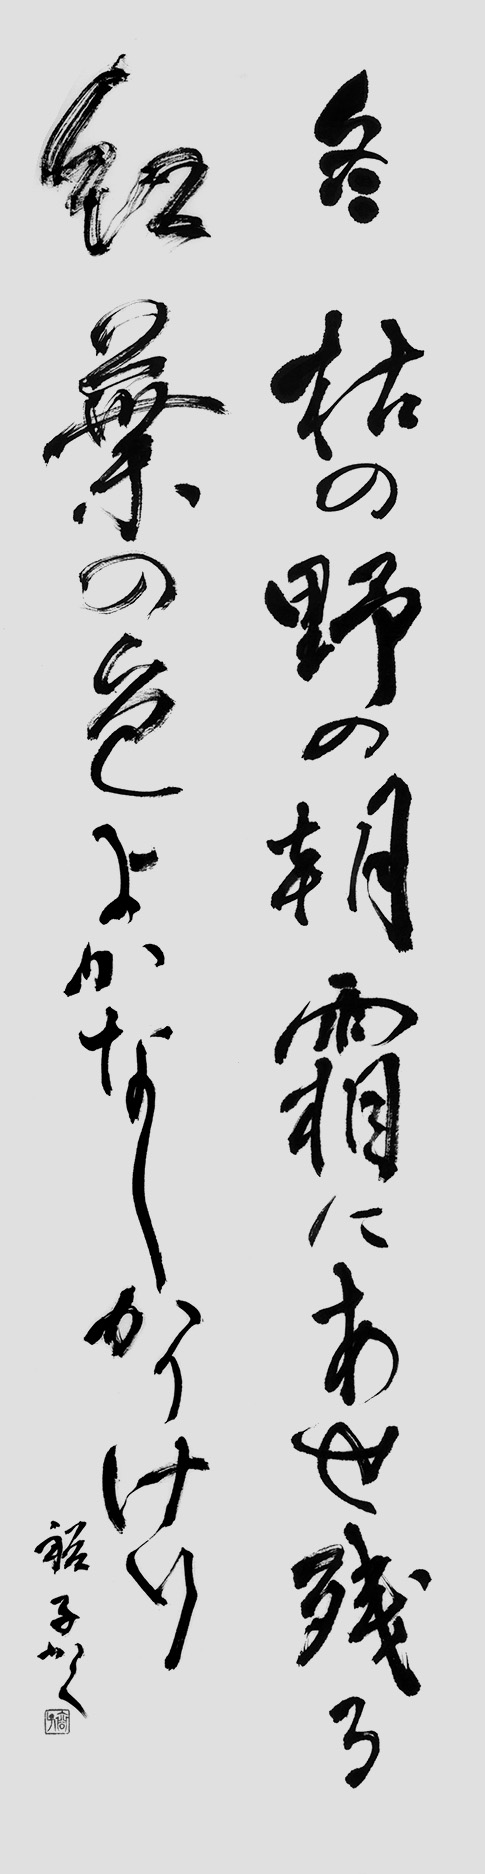 冬枯の野の朝霜にあせ残る
紅葉の色よかなしかりけり
裕子かく